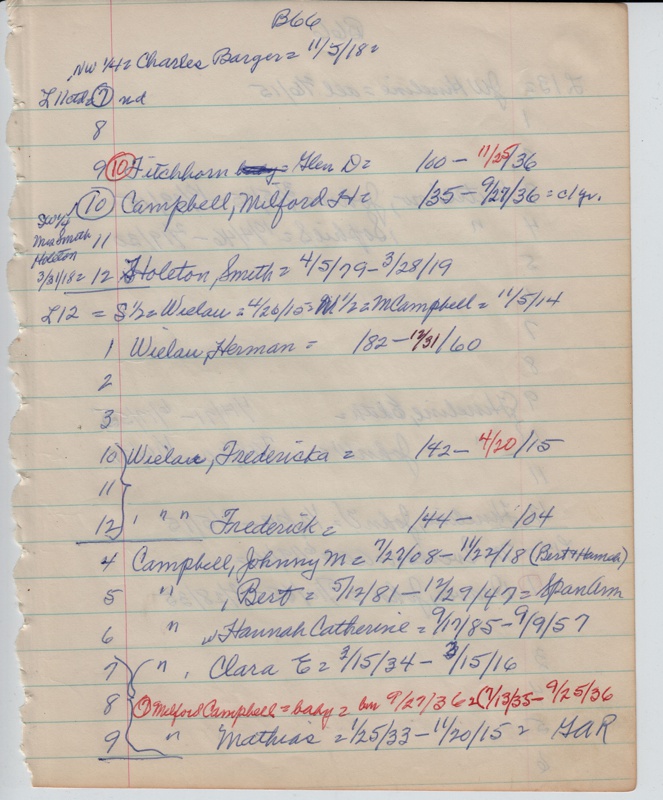 B66
NW 1/4 = Charles Barger = 11/5/18 =
7 nd
8
9 (10) Fitchhorn baby = Glen D = /00 - 11/25/36
(10) Campbell, Milford H = /35 - 9/27/36 = c/gr.
SW 1/4
Mrs Smith 11
Holeton
3/31/18 = 12 Holeton, Smith = 4/5/79 - 3/28/19
L12 = S 1/2 = Wielau = 4/26/15 = N 1/2 = M Campbell = 11/5/14
1 Wielau, Herman = /82 - 12/31/60
2
3
10 Wielau, Fredericka = /42 - 4/20/15
11
12 " " " Frederick = /44 - /04
4 Campbell, Johnny M = 7/27/08 - 11/22/18 (Bert & Hannah)
5 " , Bert = 5/12/81 - 12/29/47 = Span Am
6 " w Hannah Catherine = 9/17/85 - 9/9/57
7 ( " , Clara E = 2/15/34 - 3/15/16
8 Milford Campbell = baby = bur 9/27/36 = (7/13/35 - 9/25/36
9 " Mathias = 1/25/33 - 11/20/15 = GAR